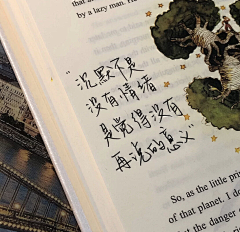 that
by a lazy man. He
"沉默不是
没有情绪
是觉得没有
再说的意义
So, as the little prin
of that planet. I do
t the danger